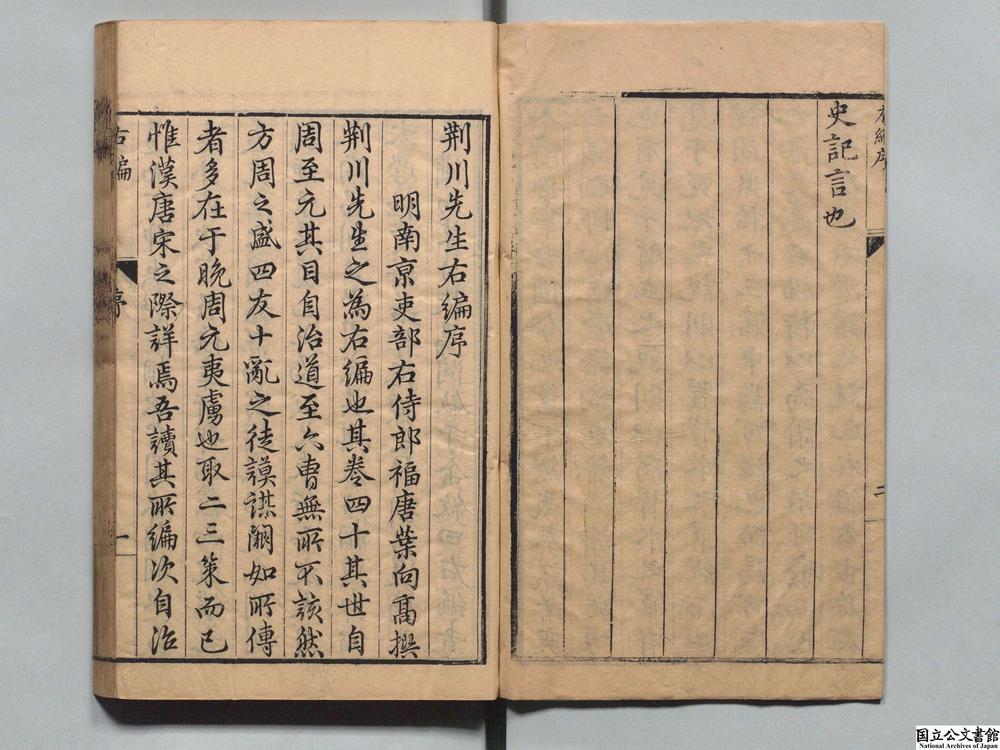 史記言也
右編序
二
荆川先生右編序
明南京吏部右侍郎福唐葉向髙撰
荆川先生之為右編也其卷四十其世自
周至元其目自治道至六曹無所不該然
方周之盛四友十亂之徒謨謀闕如所傳
者多在于晚周元夷虜也取二三策而已
惟漢唐宋之際詳焉吾讀其所編次自治
右編
序
一
国立公文書館
National Archives of Japan